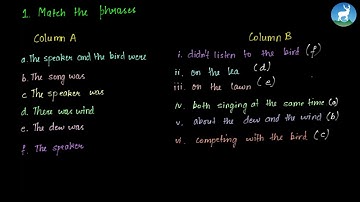 1. Match the phrases
Column A
Column B
a. The speaker and the bird were
b. The song was
c The speaker was
d. There was wind
e. The dew was
f. The speaker
i. didn't listen to the bird (f)
ii. on the sea (d)
iii. on the lawn (e)
iv. both singing at the same time (a)
v. about the dew and the wind (b)
vi. competing with the bird (c)